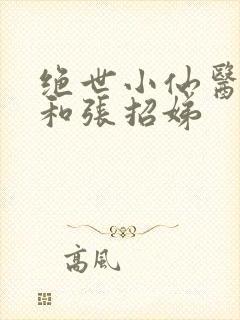 绝世小仙醫
和張招娣
高風